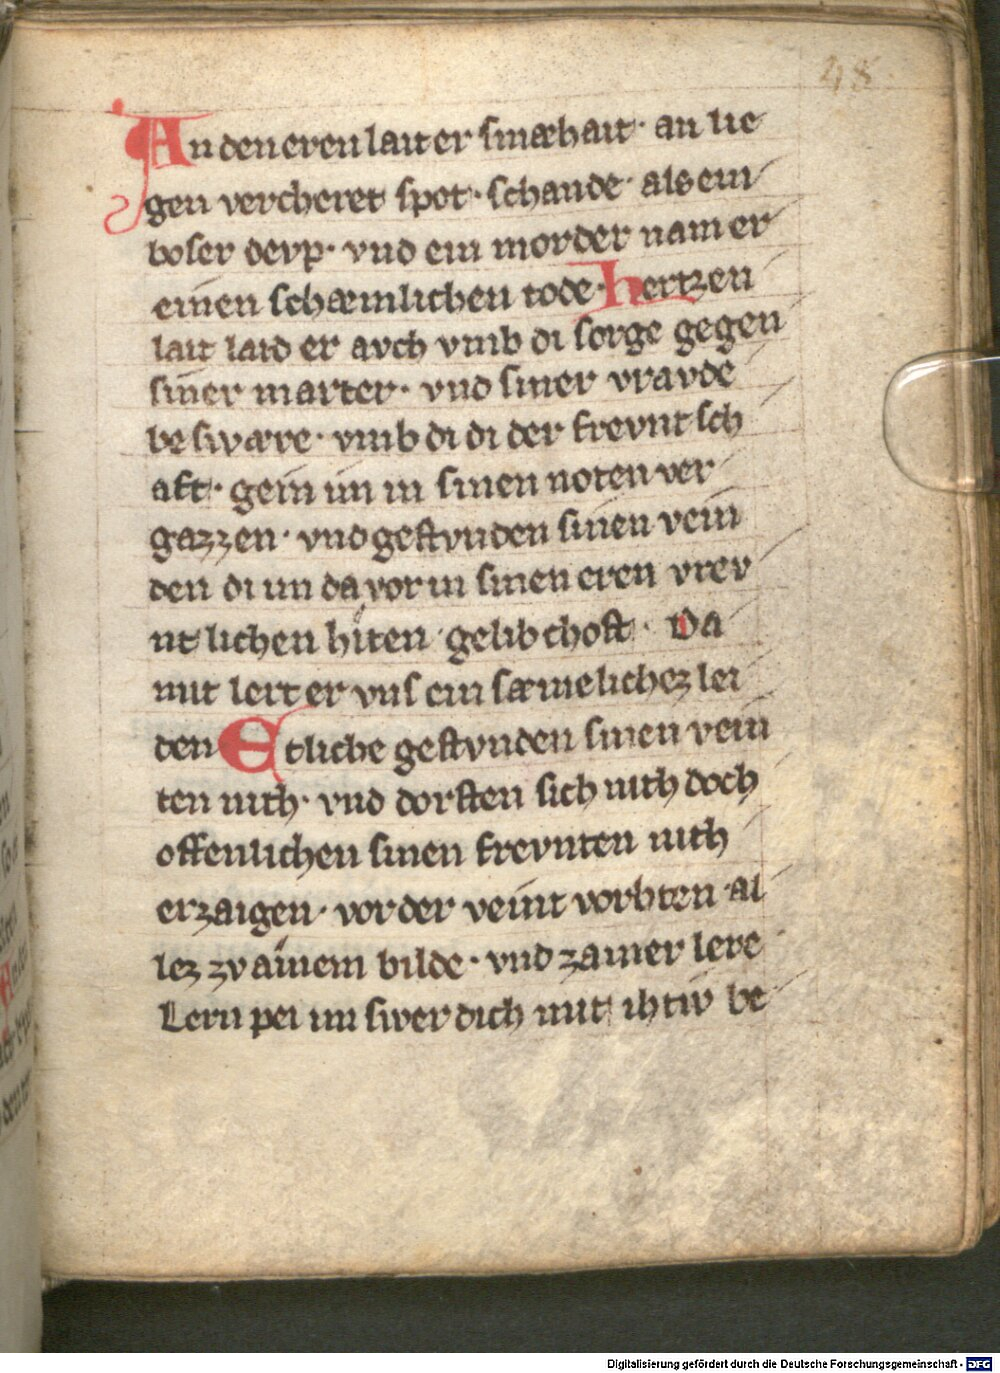 48
An den eren lait er smæhait · an lie
gen vercheret spot · schande · als ein
boser deyp · vnd ein morder nam er
einen schæmlichen tode · hertzen
lait laid er avch vmb di sorge gegen
siner marter · vnd siner vravde
beswære · vmb di di der frevntsch
aft · gein im in sinen noten ver
gazzen · vnd gestvnden sinen vein
den di im da vor in sinen eren vrev
ntlichen hiten gelibchost · Da
mit lert er vns ein sæmelichez lei
den Etliche gestvnden sinen vein
ten nith · vnd dorsten sich nith doch
offenlichen sinen frevnten nith
erzaigen · vor der veint vorhten · al
lez zv ainem bilde · vnd zainer lere
Lern pei im swer dich mit ihtiv be
Digitalisierung gefördert durch die Deutsche Forschungsgemeinschaft - DFG